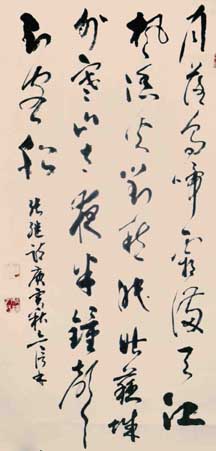 月落烏啼霜滿天江
楓漁火對愁眠姑蘇城
外寒山寺夜半鐘聲
到客船
張繼詩庚寅秋